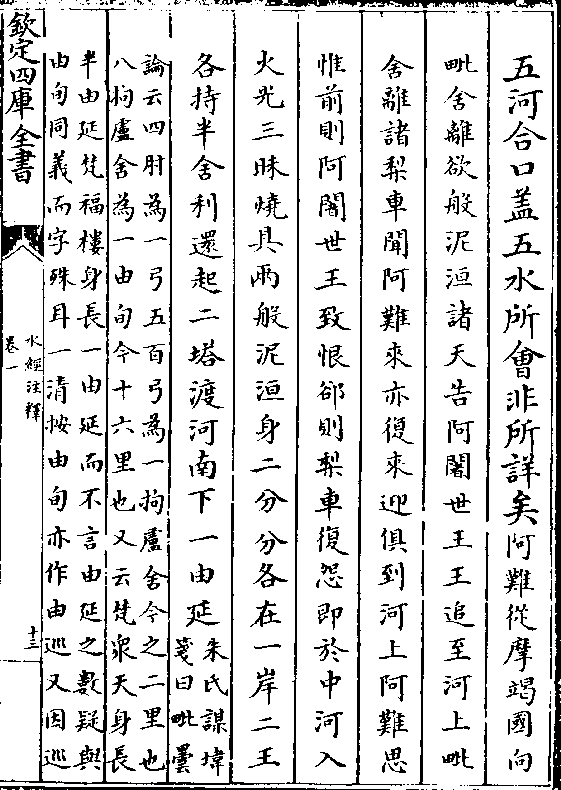 五河合口蓋五水所會非所詳矣阿難從摩竭國向
毗舍離欲般泥洹諸天告阿闍世王王追至河上毗
舍離諸梨車聞阿難來亦復來迎俱到河上阿難思
惟前則阿闍世王致恨郤則梨車復怨即於中河入
火光三昧燒具兩般泥洹身二分分各在一岸二王
各持半舍利還起二塔渡河南下一由延
朱氏謀㙔
箋曰毗曇
論云四肘為一弓五百弓為一拘盧舍今之二里也
八拘盧舍為一由旬今十六里也又云梵衆天身長
半由延梵福樓身長一由延而不言由延之數疑與
由旬同義而字殊耳一清按由旬亦作由巡又因巡
欽定四庫全書
水經注釋
卷一
十三